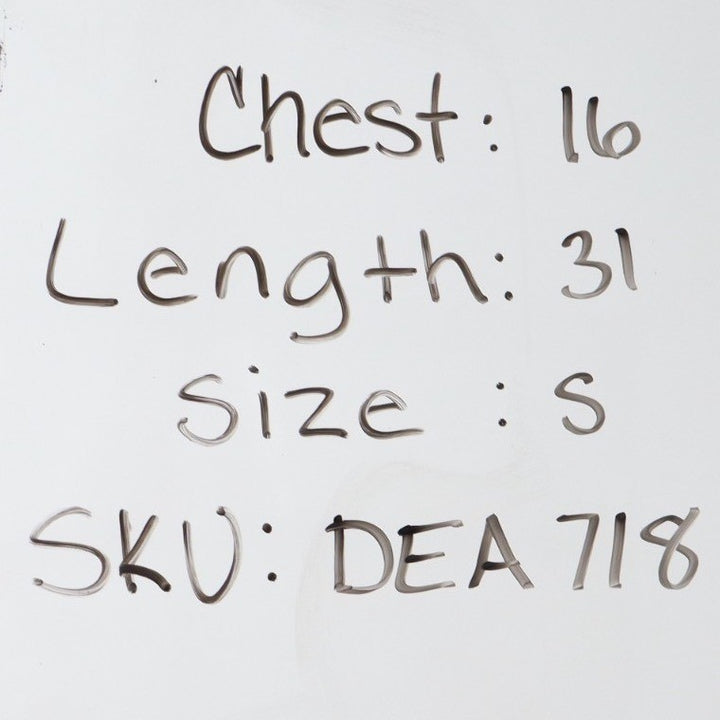 Chest: 16
Length: 31
Size: S
SKU: DEA 718